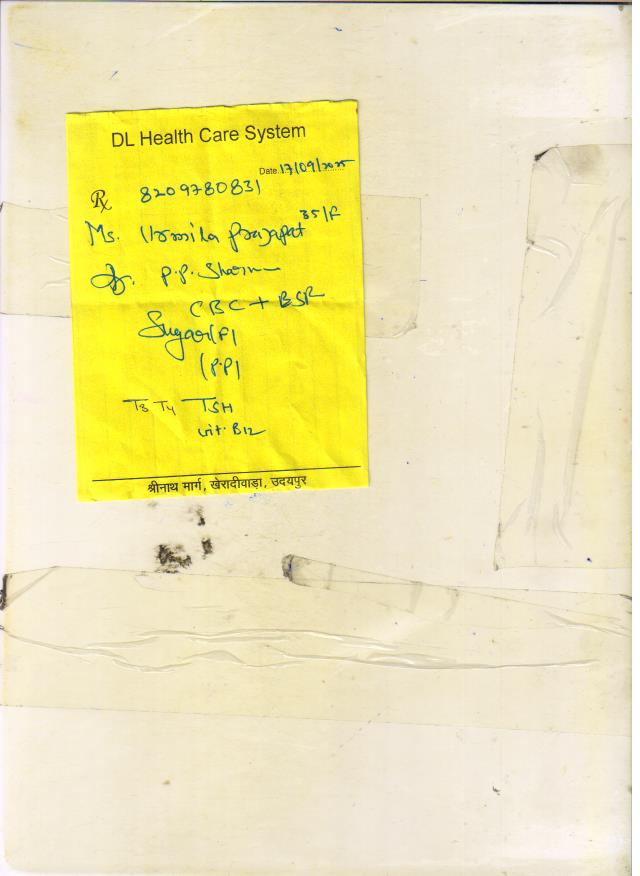 DL Health Care System
Date. 17/09/2025
Rx 8209780831
35/F
Ms. Urmila Prajapat
Dr. P.P. Sharma
CBC + ESR
Sugar (F)
(P.P)
T3 T4 TSH
Vit. B12
श्रीनाथ मार्ग, खेरादीवाड़ा, उदयपुर